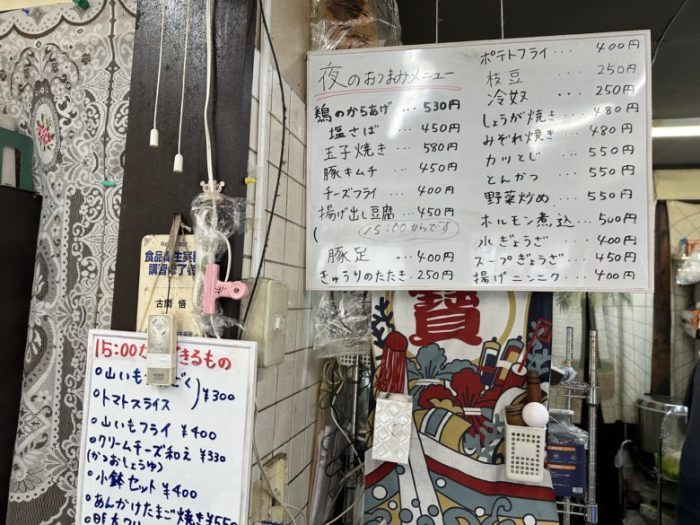 夜のおつまみメニュー
鶏のからあげ ・・・ 530円
塩さば ・・・ 450円
玉子焼き ・・・ 580円
豚キムチ ・・・ 450円
チーズフライ ・・・ 400円
揚げ出し豆腐 ・・・ 450円
(15:00からです)
豚足 ・・・ 400円
きゅうりのたたき ・・・ 250円
ポテトフライ ・・・ 400円
枝豆 ・・・ 250円
冷奴 ・・・ 250円
しょうが焼き ・・・ 480円
みぞれ焼き ・・・ 480円
カツとじ ・・・ 550円
とんかつ ・・・ 550円
野菜炒め ・・・ 550円
ホルモン煮込 ・・・ 500円
水ぎょうざ ・・・ 400円
スープぎょうざ ・・・ 450円
揚げニンニク ・・・ 400円
寶
食品衛生
講習修了
古
悟
15:00 できるもの
○山いも
○トマトスライス
¥300
○山いもフライ ¥400
○クリームチーズ和え ¥330
(かつおしょうゆ)
○小鉢セット ¥400
○あんかけたまご焼き ¥550